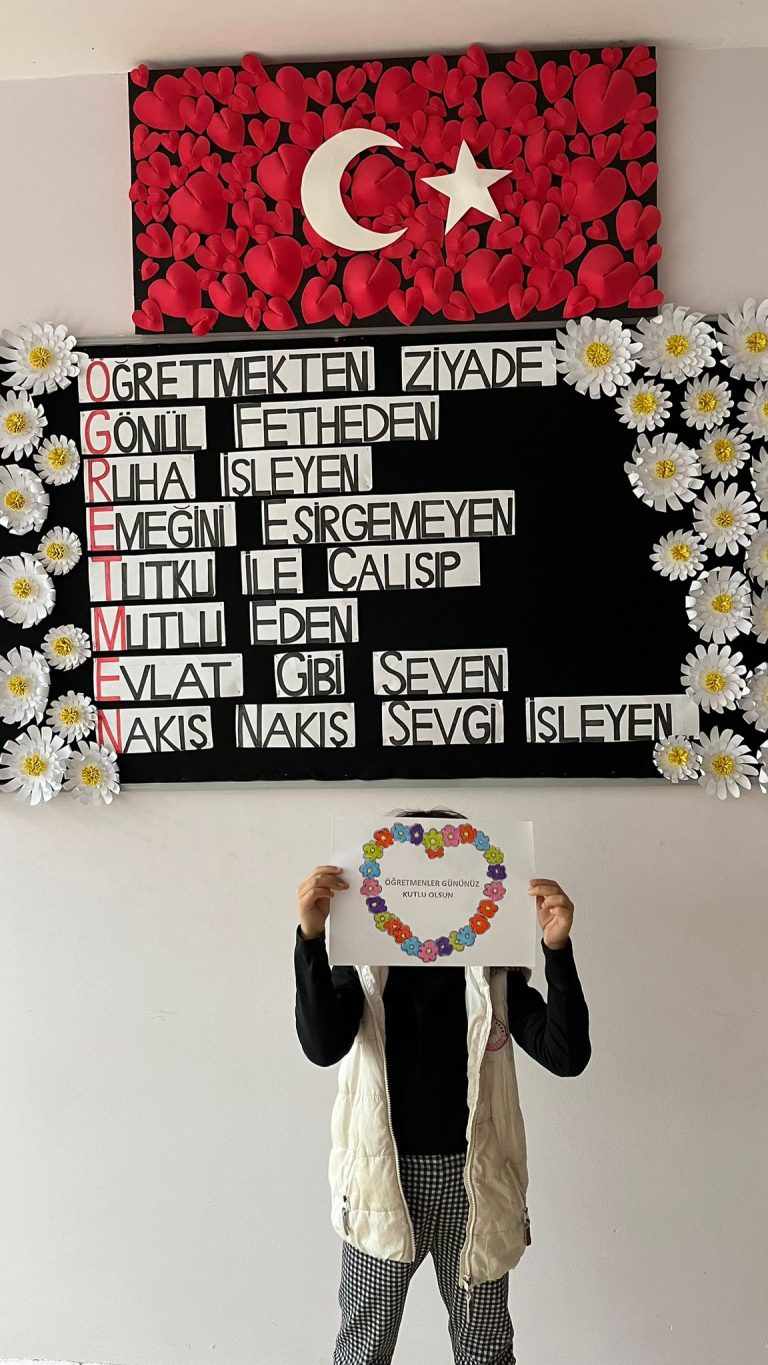 ÖĞRETMEKTEN ZİYADE
GÖNÜL FETHEDEN
RUHA İŞLEYEN
EMEĞİNİ ESİRGEMEYEN
TUTKU İLE ÇALIŞIP
MUTLU EDEN
EVLAT GİBİ SEVEN
NAKIŞ NAKIŞ SEVGİ İŞLEYEN
ÖĞRETMENLER GÜNÜNÜZ
KUTLU OLSUN